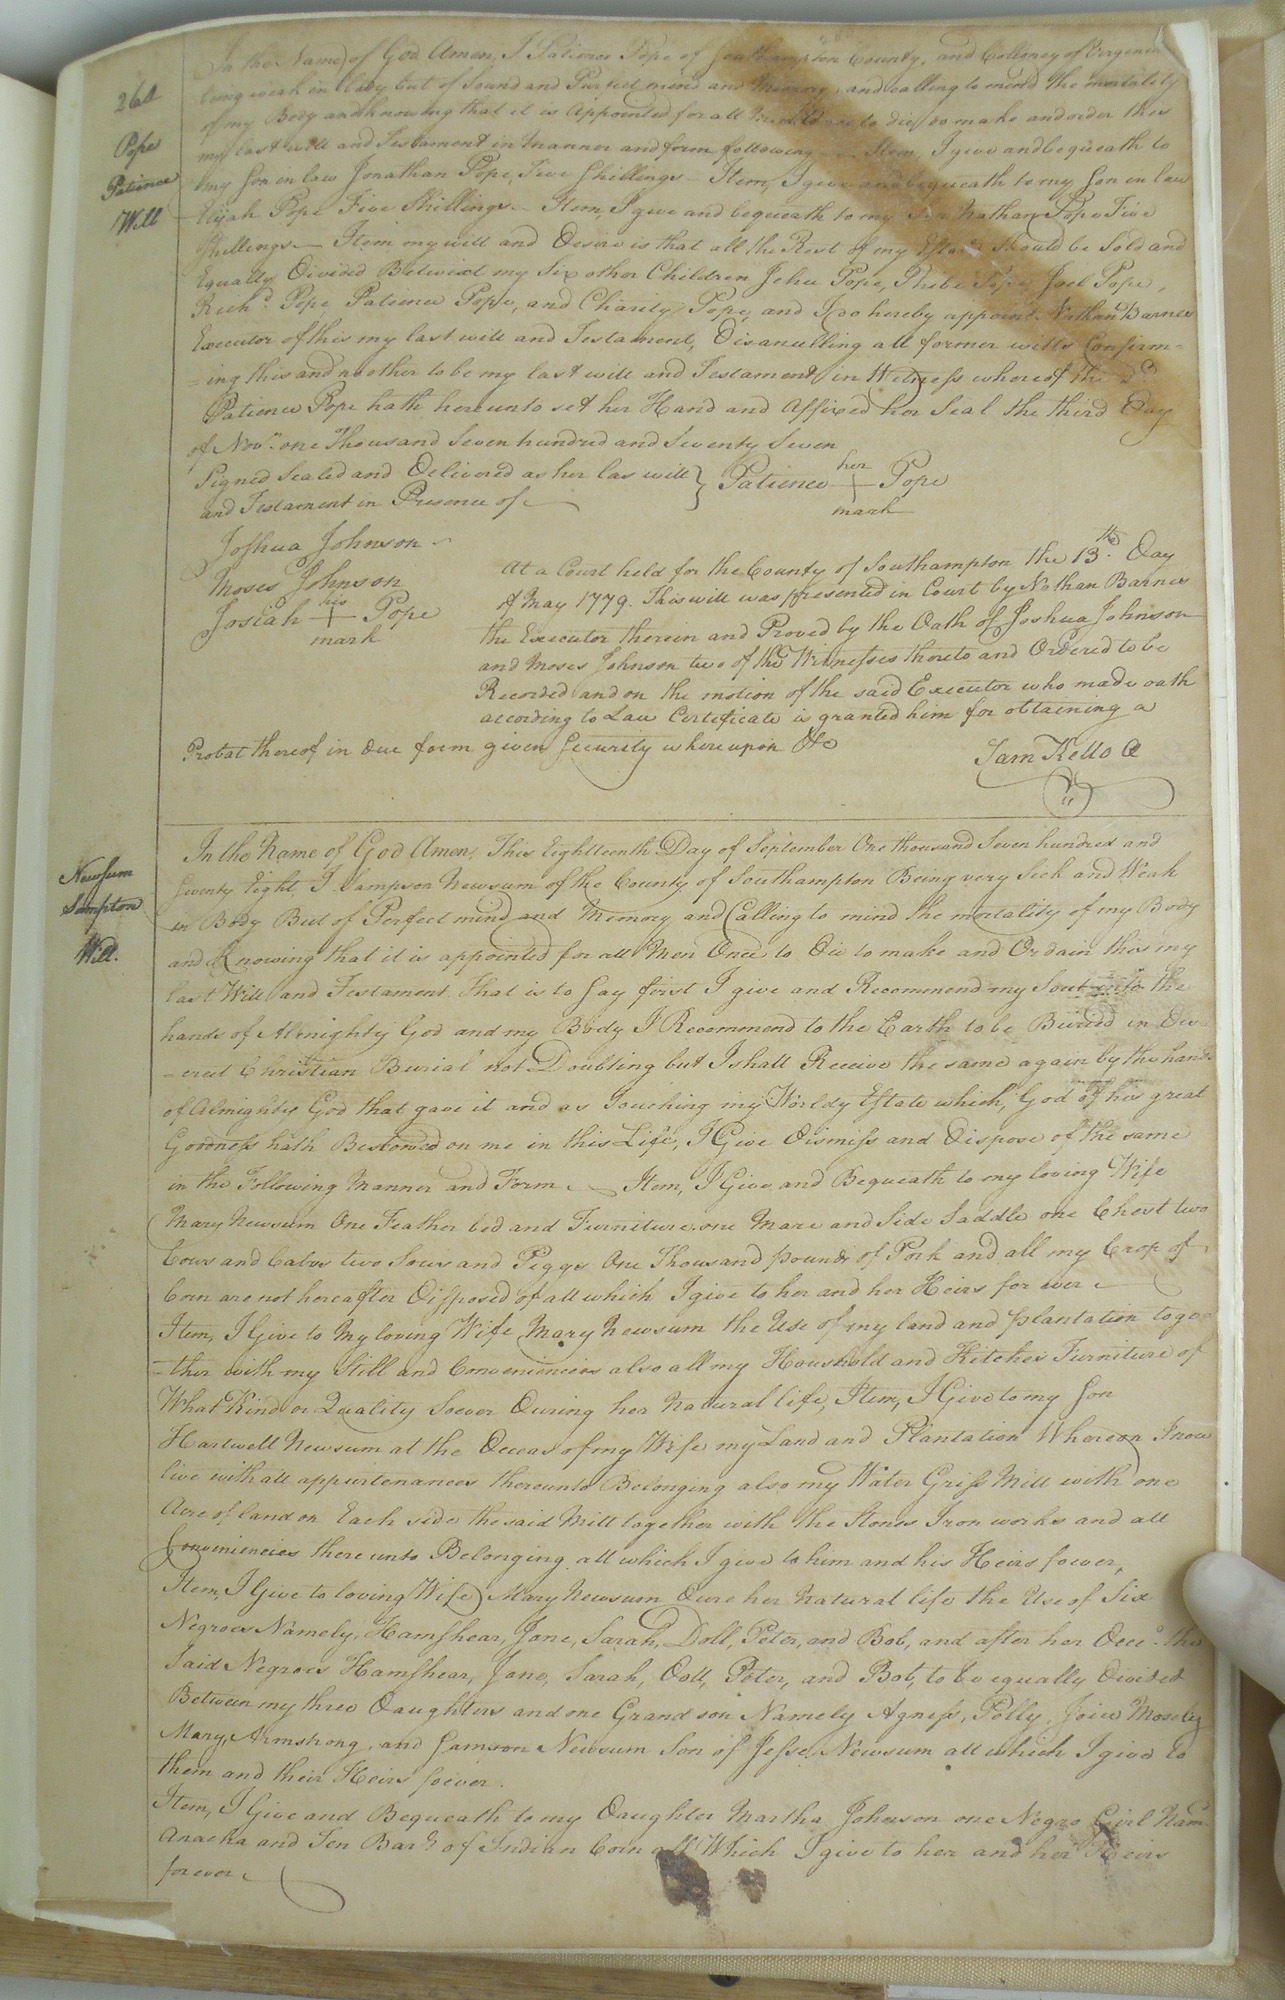 264
Pope
Patience
Will
In the Name of God Amen, I Patience Pope of Southampton County, and Colloney of Virginia
being weak in Body but of Sound and Purfect mind and Memory, and calling to mind the mortality
of my Body and knowing that it is Appointed for all to die, do make and order this
my last will and Testament in Manner and form following — Item, I give and bequeath to
my Son in law Jonathan Pope, Five Shillings — Item, I give and bequeath to my Son in law
Elijah Pope Five Shillings — Item, I give and bequeath to my Son Nathan Pope Five
Shillings — Item my will and Desire is that all the Rest of my Estate Should be Sold and
Equally Divided Betwixt my Six other Children John Pope, Phebe Pope, Joel Pope,
Richd. Pope, Patience Pope, and Charity Pope, and I do hereby appoint Nathan Barnes
Executor of this my last will and Testament, Disanulling all former wills Confirm=
=ing this and no other to be my last will and Testament, in Witness whereof the sd.
Patience Pope hath hereunto set her Hand and Affixed her Seal the third Day
of Novr. one Thousand Seven hundred and Seventy Seven
Signed Sealed and Delivered as her las will } Patience her + mark Pope
and Testament in Presence of —
Joshua Johnson
Moses Johnson
Josiah his + mark Pope
At a Court held for the County of Southampton the 13th. Day
of May 1779. This will was presented in Court by Nathan Barnes
the Executor therein and Proved by the Oath of Joshua Johnson
and Moses Johnson two of the Witnesses thereto and Ordered to be
Recorded and on the motion of the said Executor who made oath
according to Law Certificate is granted him for obtaining a
Probat thereof in due form given Security whereupon &c
Sam Kello C
Newsum
Sampton
Will.
In the Name of God Amen, This Eighteenth Day of September One thousand Seven hundred and
Seventy Eight, I Sampson Newsum of the County of Southampton Being very Sick and Weak
in Body But of Perfect mind and Memory and Calling to mind the mortality of my Body
and Knowing that it is appointed for all Men Once to Die to make and Ordain this my
last Will and Testament That is to Say first I give and Recommend my Soul into the
hands of Almighty God and my Body I Recommend to the Earth to be Buried in De=
=cent Christian Burial not Doubting but I shall Receive the same again by the hands
of Almighty God that gave it and as Touching my Worldy Estate which God of his great
Goodness hath Bestowed on me in this Life, I Give Dismiss and Dispose of the same
in the Following Manner and Form — Item, I Give and Bequeath to my loving Wife
Mary Newsum One Feather bed and Furniture one Mare and Side Saddle one Chest two
Cows and Calves two Sows and Piggs One Thousand pounds of Pork and all my Crop of
Corn are not hereafter Disposed of all which I give to her and her Heirs for ever
Item, I Give to My loving Wife Mary Newsum the Use of my land and plantation toge=
=ther with my Still and Conveniencies also all my Houshold and Kitchen Furniture of
What Kind or Quality Soever During her Natural life, Item, I Give to my Son
Hartwell Newsum at the Deceas of my Wife my Land and Plantation Whereon I now
live with all appurtenances thereunto Belonging also my Water Griss Mill with one
Acre of land on Each side the said Mill together with the Stones Iron works and all
Conveniencies there unto Belonging all which I give to him and his Heirs forever,
Item, I Give to loving Wife Mary Newsum Dure her Natural life the Use of Six
Negroes Namely, Hamshear, Jane, Sarah, Doll, Peter, and Bob, and after her Dece'd. the
Said Negroes Hamshear, Jane, Sarah, Doll, Peter, and Bob, to be equally Divided
Between my three Daughters and one Grand son Namely Agness, Polly, Joice Mosely
Mary, Armstrong, and Samson Newsum Son of Jesse Newsum all which I give to
them and their Heirs forever.
Item, I Give and Bequeath to my Daughter Martha Johnson one Negro Girl Nam'd
Anacka and Ten Barls of Indian Corn all Which I give to her and her Heirs
forever